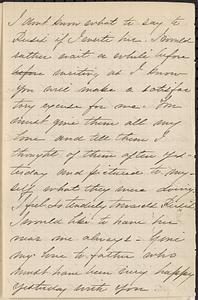 I dont know what to say to
if I write her. I would
rather wait a while before
before writing as I know
you will make a satisfac
tory excuse for me. You
must give them all my
love and tell them I
thought of them often yes-
terday and pictured to my-
self what they were doing.
I feel so tenderly towards
I would like to have her
near me always - Give
my love to father who
must have been very happy
yesterday with you